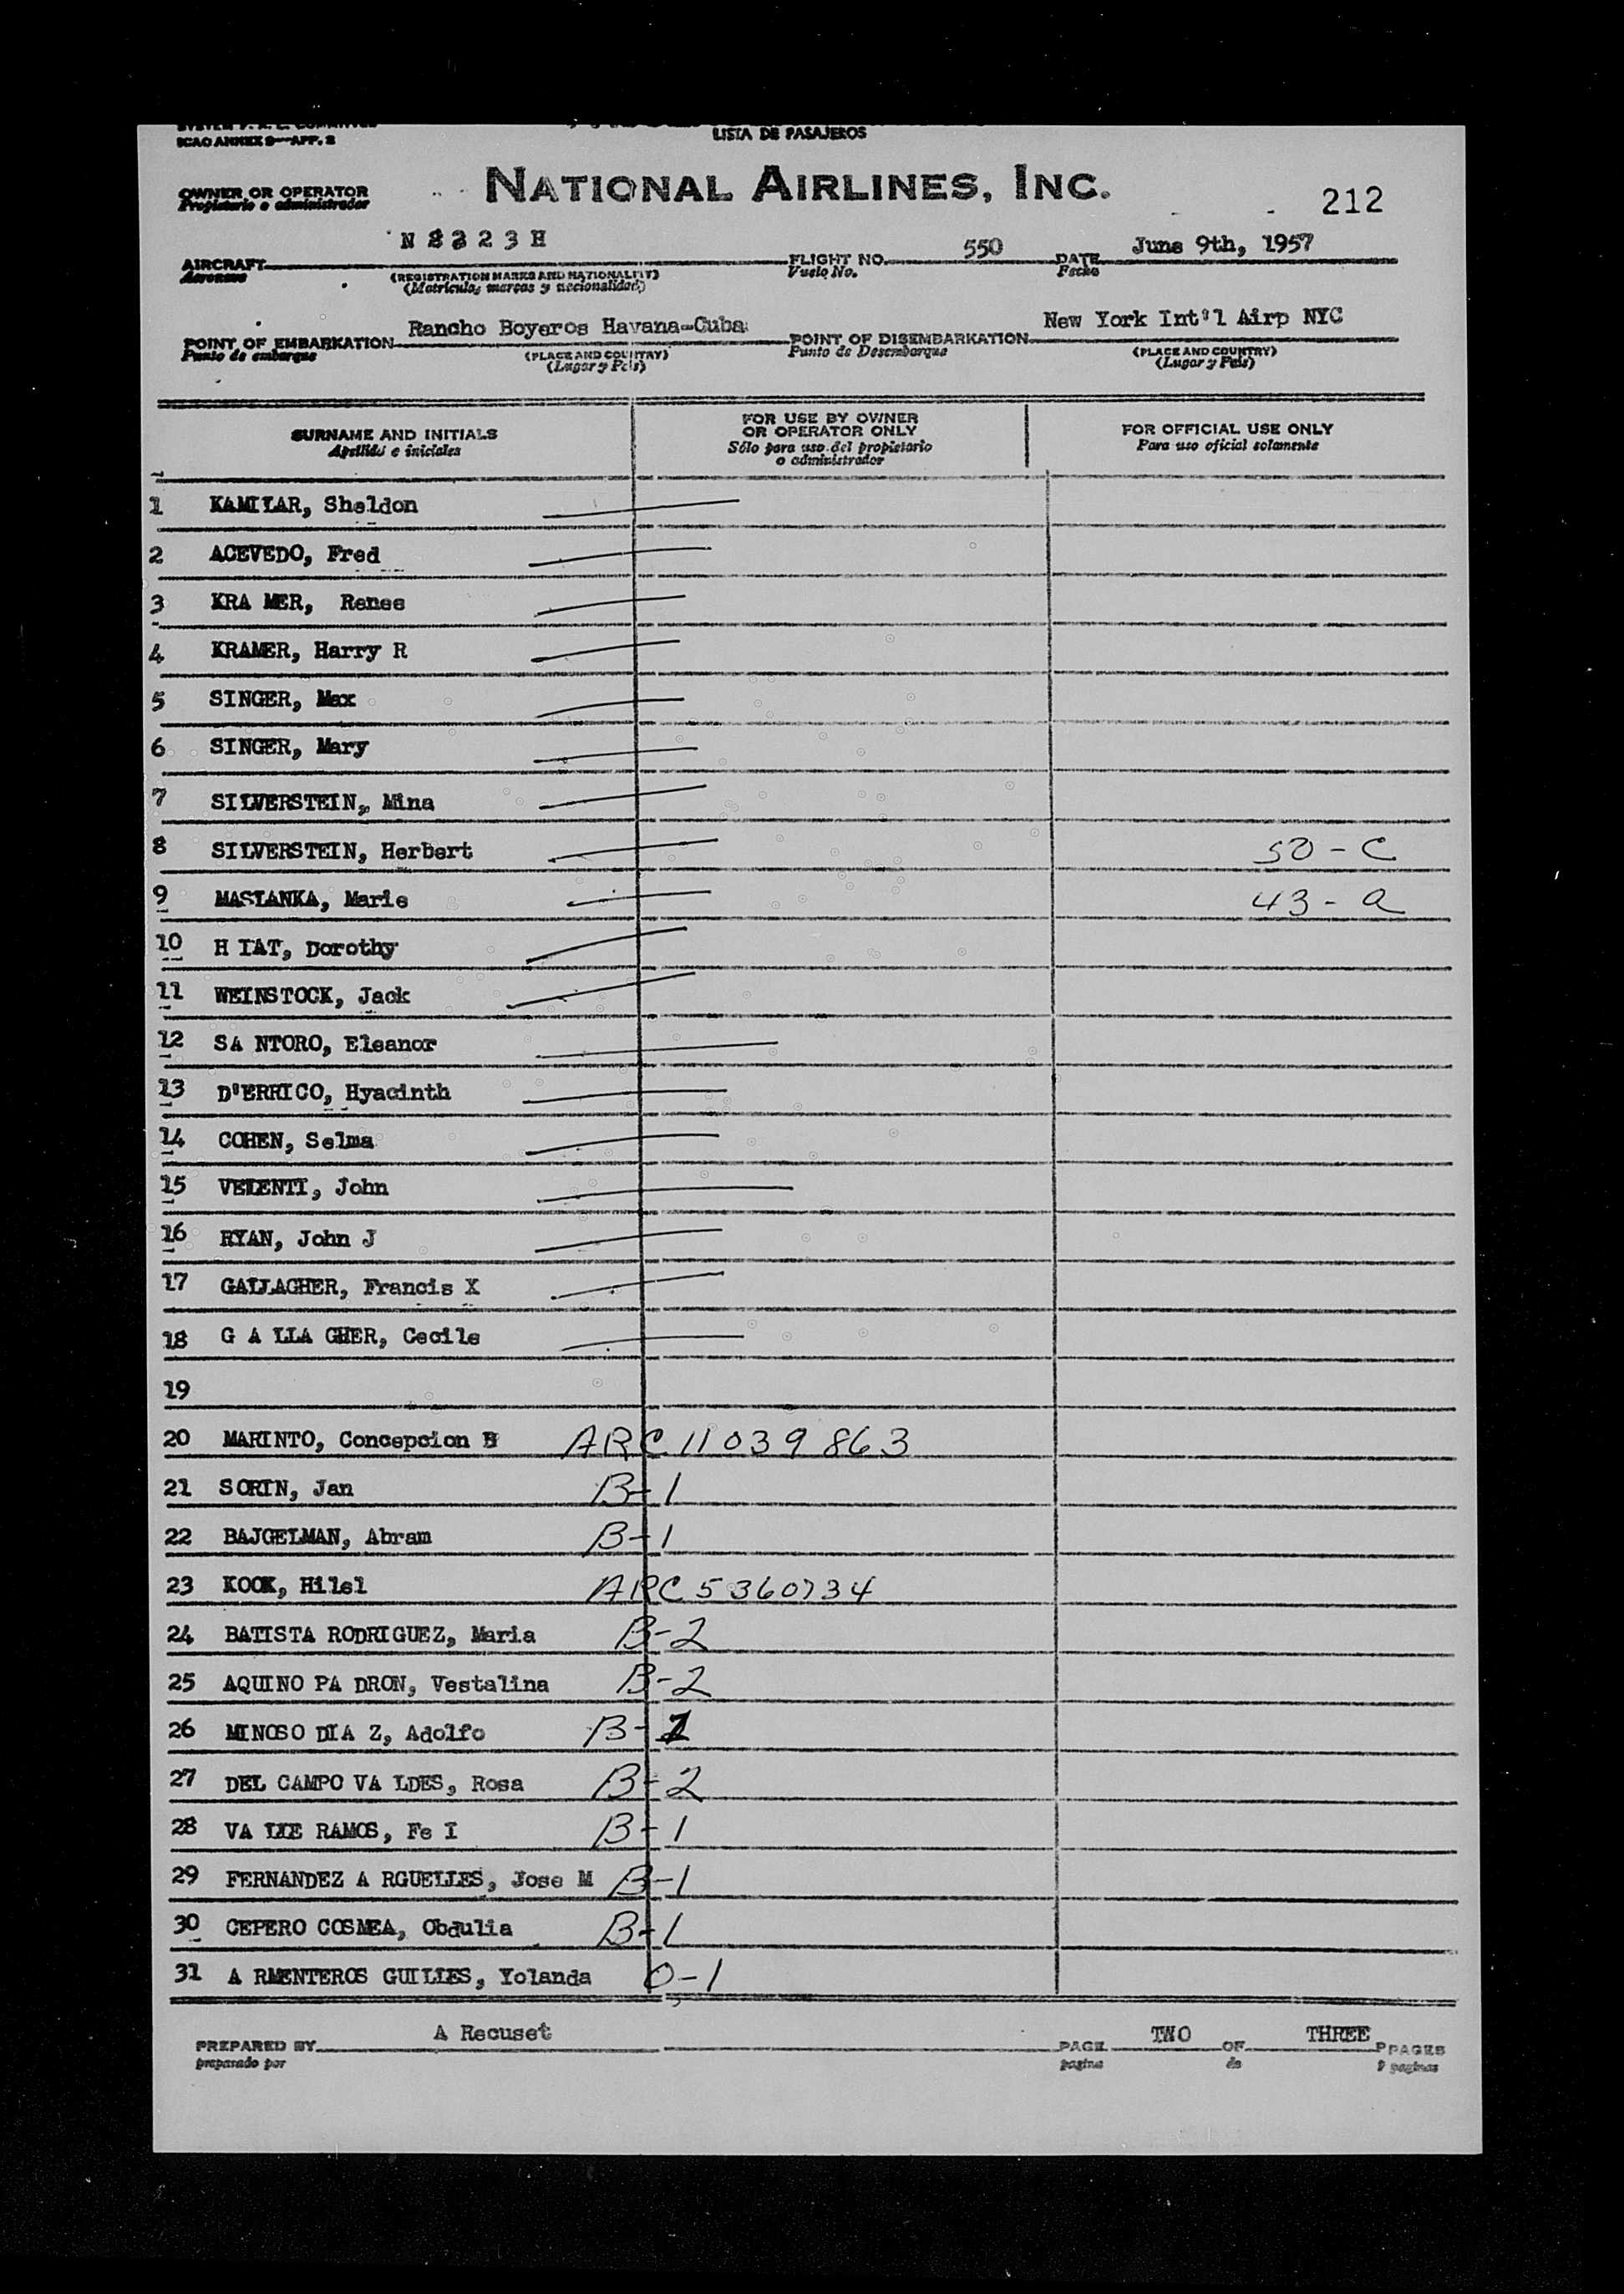 ICAO ANNEX 9—APP. 2
LISTA DE PASAJEROS
OWNER OR OPERATOR
Propietario o administrador
NATIONAL AIRLINES, INC.
212
AIRCRAFT
Aeronave
(REGISTRATION MARKS AND NATIONALITY)
(Matriculas marcas y nacionalidad)
FLIGHT NO. 550
Vuelo No.
DATE June 9th, 1957
Fecha
POINT OF EMBARKATION Rancho Boyeros Havana-Cuba
Punto de embarque
(PLACE AND COUNTRY)
(Lugar y País)
POINT OF DISEMBARKATION New York Int'l Airp NYC
Punto de Desembarque
(PLACE AND COUNTRY)
(Lugar y País)
SURNAME AND INITIALS
Apellido e iniciales
FOR USE BY OWNER
OR OPERATOR ONLY
Sólo para uso del propietario
o administrador
FOR OFFICIAL USE ONLY
Para uso oficial solamente
1 KAMILAR, Sheldon
2 ACEVEDO, Fred
3 KRA MER, Renee
4 KRAMER, Harry R
5 SINGER, Max
6 SINGER, Mary
7 SILVERSTEIN, Mina
8 SILVERSTEIN, Herbert 50-C
9 MASLANKA, Marie 43-a
10 H IAT, Dorothy
11 WEINSTOCK, Jack
12 SA NTORO, Eleanor
13 D'ERRICO, Hyacinth
14 COHEN, Selma
15 VELENTI, John
16 RYAN, John J
17 GALLAGHER, Francis X
18 G A LLA GHER, Cecile
19
20 MARINTO, Concepcion B ARC 11039863
21 SORIN, Jan B-1
22 BAJGELMAN, Abram B-1
23 KOOK, Hilel ARC 5360734
24 BATISTA RODRIGUEZ, Maria B-2
25 AQUINO PA DRON, Vestalina B-2
26 MINOSO DIA Z, Adolfo B-1
27 DEL CAMPO VA LDES, Rosa B-2
28 VA LLE RAMOS, Fe I B-1
29 FERNANDEZ A RGUELLES, Jose M B-1
30 CEPERO COSMEA, Obdulia B-1
31 A RMENTEROS GUILLES, Yolanda O-1
PREPARED BY A Recuset
preparado por
PAGE TWO OF THREE PPAGES
pagina de P paginas